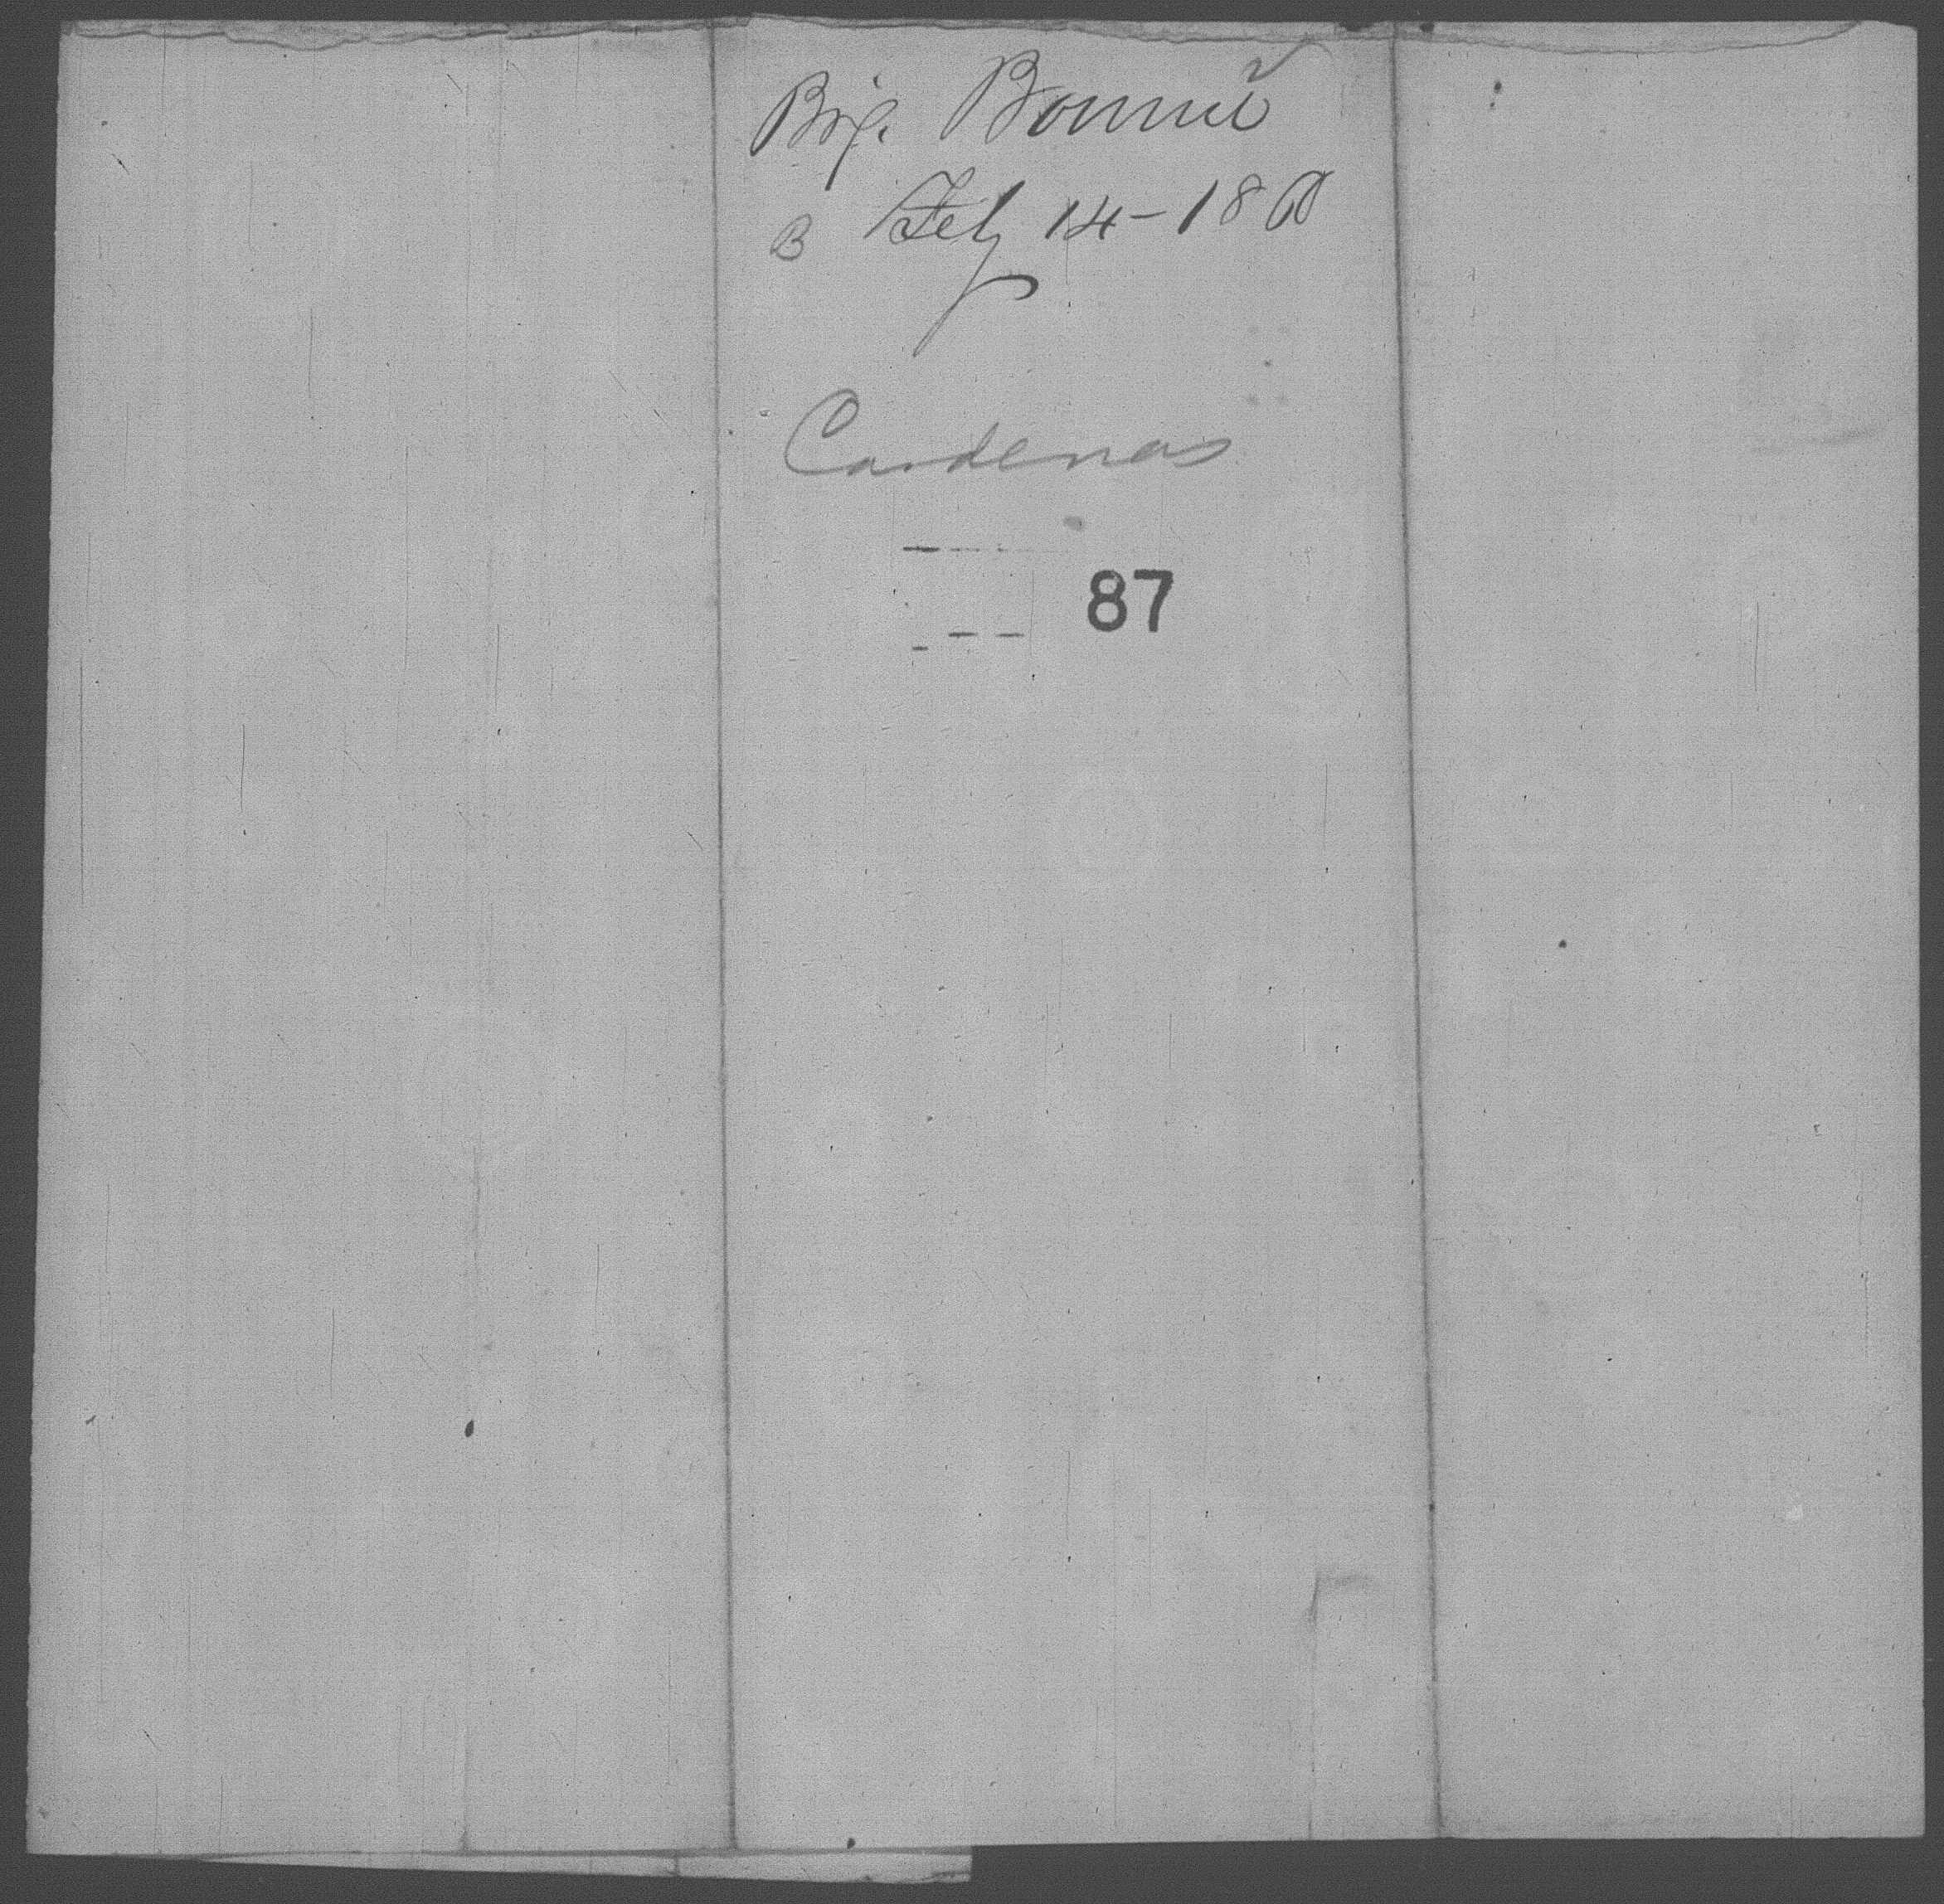 Brig. Bonnie
B Feby 14-1860
Cardenas
87